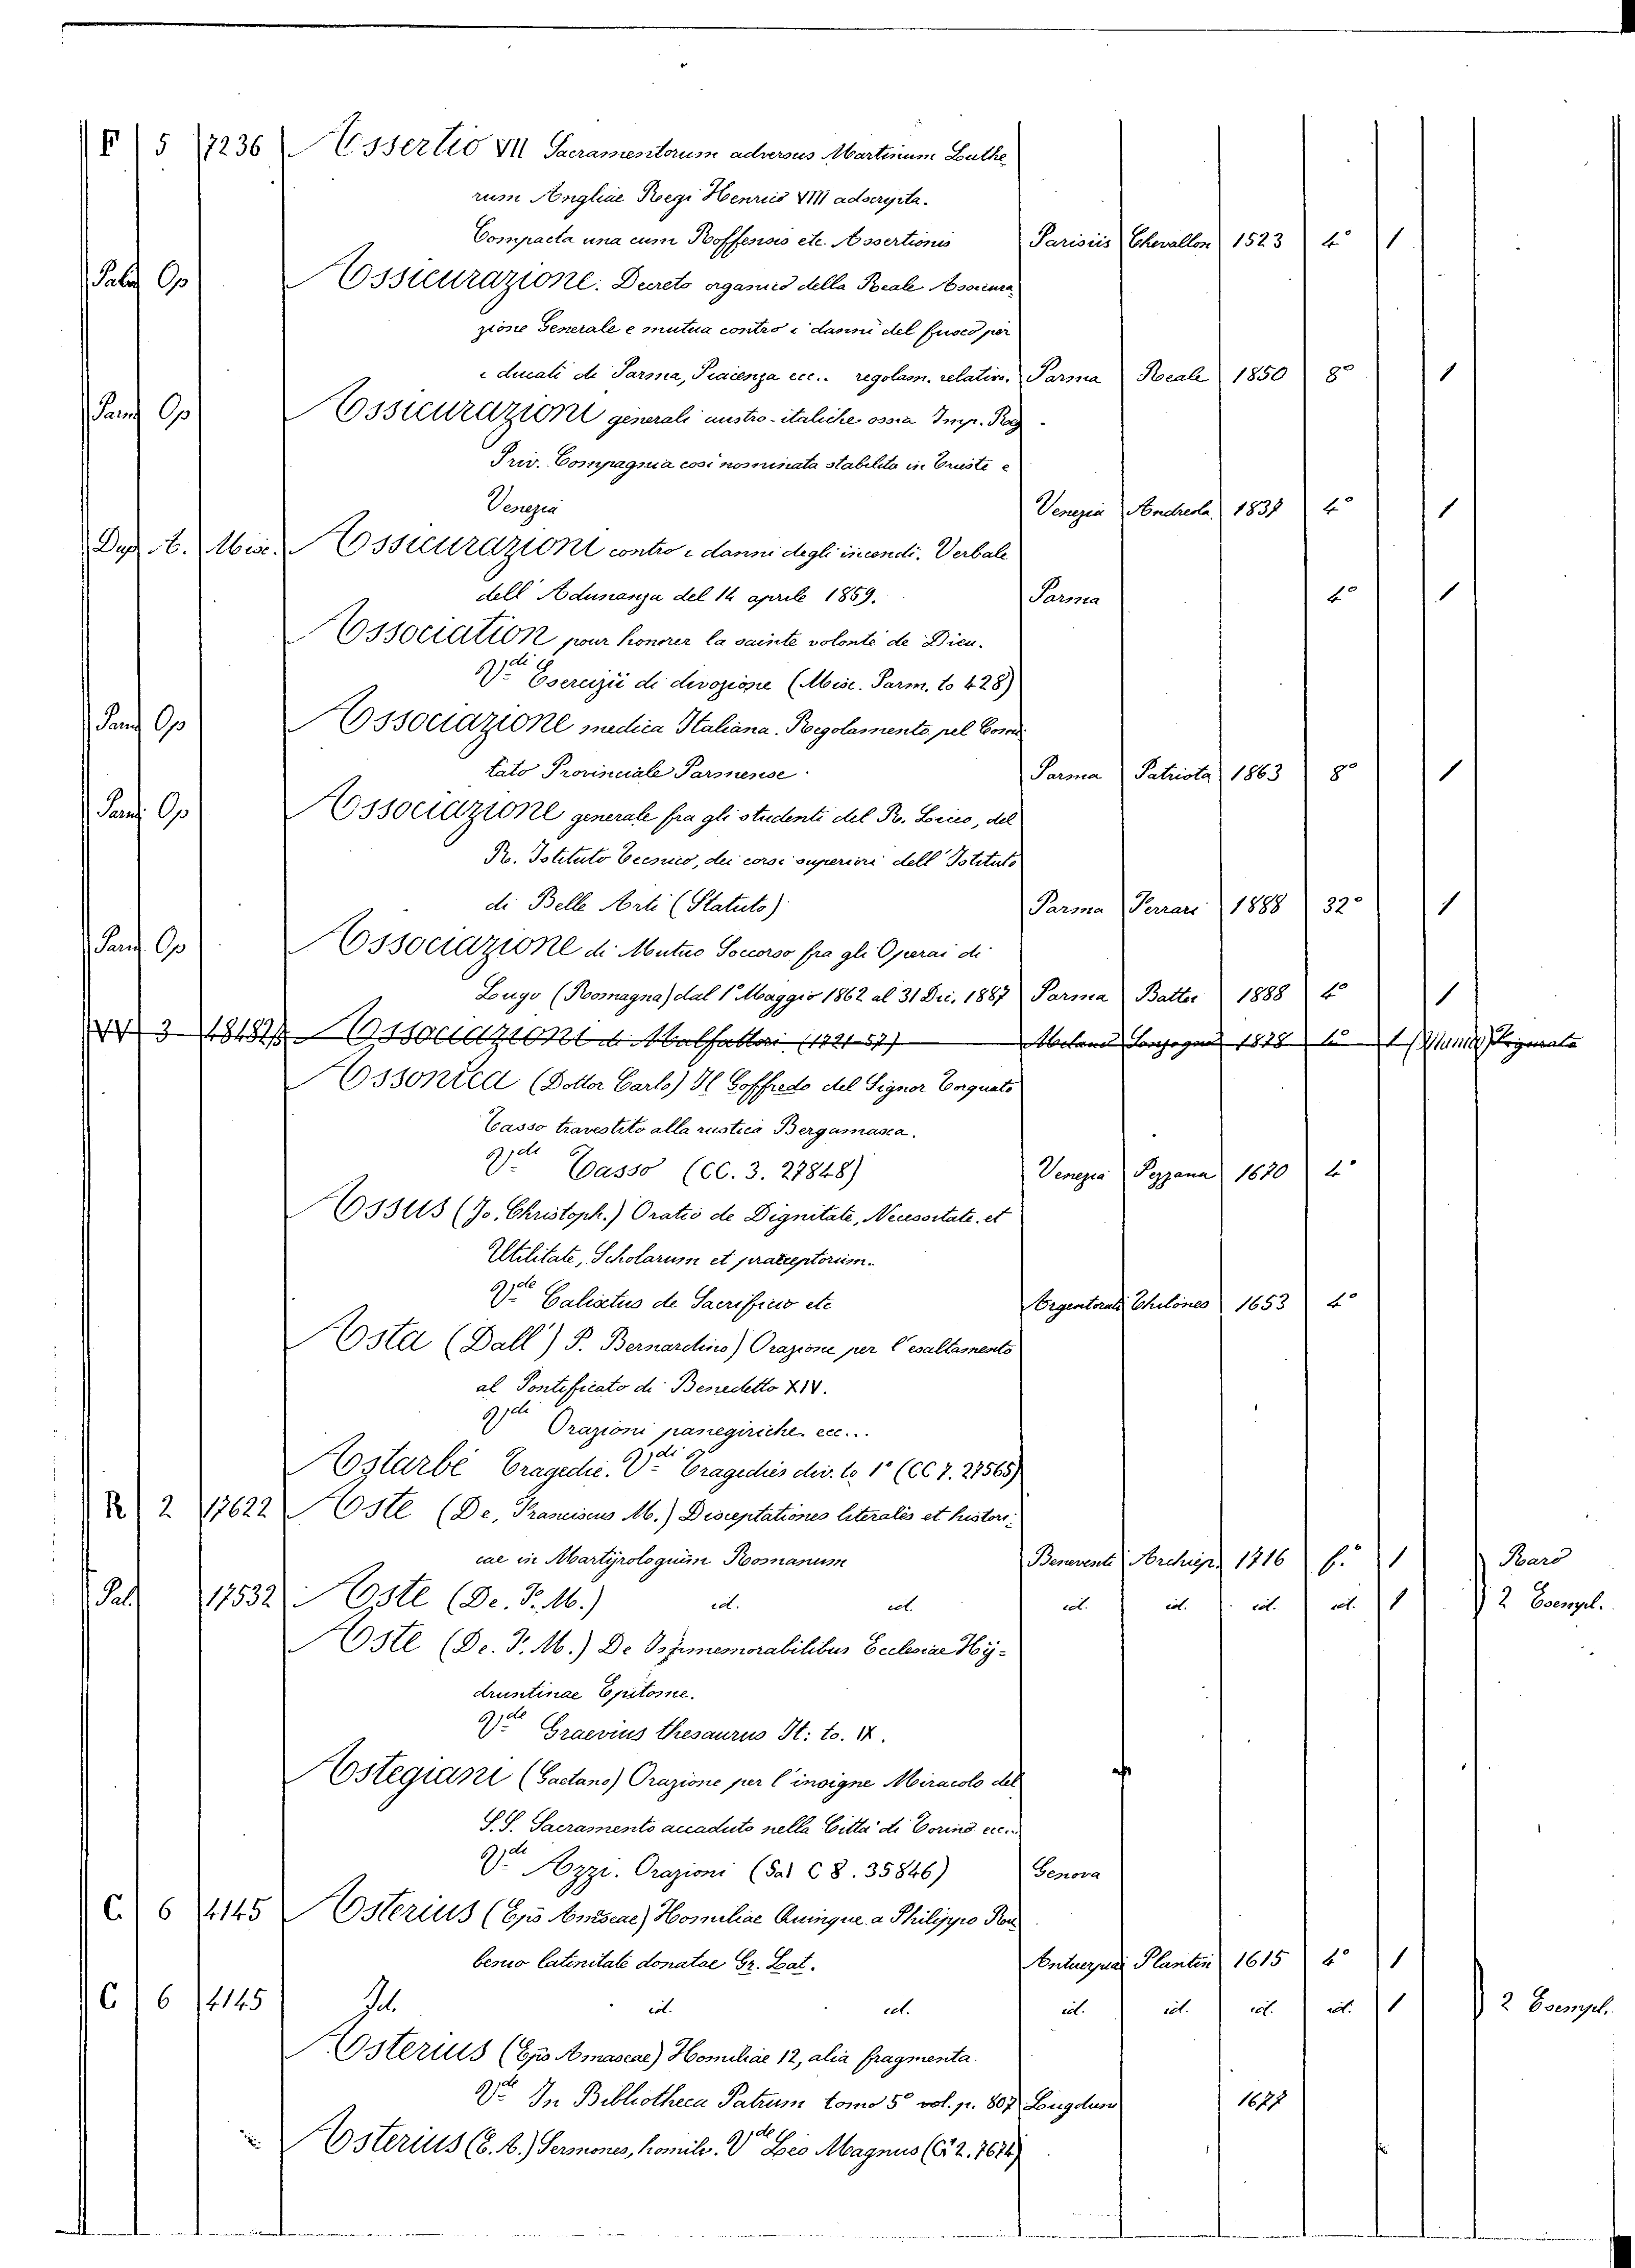 F 5 7236 Assertio VII Sacramentorum adversus Martinum Luthe
rum Angliae Regi Henrico VIII adscripta.
Compacta una cum Roffensis etc. Assertionis Parisiis Chevallon 1523 4° 1
Op Assicurazione. Decreto organico della Reale Assicura
zione Generale e mutua contro i danni del fuoco per
i ducati di Parma, Piacenza ecc.. regolam. relativo. Parma Reale 1850 8° 1
Parm Op Assicurazioni generali austro-italiche ossia Imp. Reg.
Priv. Compagnia così nominata stabilita in Trieste e
Venezia Venezia Andreola 1837 4° 1
Dep A. Misc. Assicurazioni contro i danni degli incendi. Verbale
dell'Adunanza del 14 aprile 1869. Parma 4° 1
Association pour honorer la sainte volonté de Dieu.
Vdi Esercizii di divozione (Misc. Parm. to 428)
Parm Op Associazione medica Italiana. Regolamento pel Comi
tato Provinciale Parmense Parma Patriota 1863 8° 1
Parm. Op Associazione generale fra gli studenti del R. Liceo, del
R. Istituto Tecnico, dei corsi superiori dell'Istituto
di Belle Arti (Statuto) Parma Ferrari 1888 32° 1
Parm. Op Associazione di Mutuo Soccorso fra gli Operai di
Lugo (Romagna) dal 1° Maggio 1862 al 31 Dic. 1887 Parma Battei 1888 4° 1
VV 3 Associazione di Malfattori (1721-57) Milano Sonzogno 1878 1
Assonica (Dottor Carlo) Il Goffredo del Signor Torquato
Tasso travestito alla rustica Bergamasca.
Vdi Tasso (CC. 3. 27848) Venezia Pezzana 1670 4°
Assus (Jo. Christoph.) Oratio de Dignitate, Necessitate. et
Utilitate, Scholarum et praeceptorum.
Vde Calixtus de Sacrificio etc Argentorati Thilones 1653 4°
Asta (Dall') P. Bernardino) Orazione per l'esaltamento
al Pontificato di Benedetto XIV.
Vdi Orazioni panegiriche. ecc...
Astarbé Tragedie. Vdi Tragedies div. to 1° (CC 7. 27565)
R 2 17622 Aste (De, Franciscus M.) Disceptationes literales et histori-
cae in Martyrologium Romanum Beneventi Archiep. 1716 f. 1 Raro
Pal 17532 Aste (De. F. M.) id. id. id. id. id. id. 1 2 Esempl.
Aste (De. F. M.) De memorabilibus Ecclesiae Hy-
druntinae Epitome.
Vde Graevius thesaurus It: to. IX.
Astegiani (Gaetano) Orazione per l'insigne Miracolo del
S.S. Sacramento accaduto nella Città di Torino ecc...
Vdi Azzi. Orazioni (Sal C 8. 35846) Genova
C. 6 4145 Asterius (Eps Amaseae) Homiliae Quinque. a Philippo Ru
benio latinitate donatae Gr. Lat. Antuerpiae Plantin 1615 4° 1
C 6 4145 Id. id. id. id. id. id. id. 1 2 Esempl.
Asterius (Eps Amaseae) Homiliae 12, alia fragmenta
Vde In Bibliotheca Patrum tomo 5° vol. p. 807 Lugduni 1677
Asterius (E. A.) Sermones, homil. Vde Leo Magnus